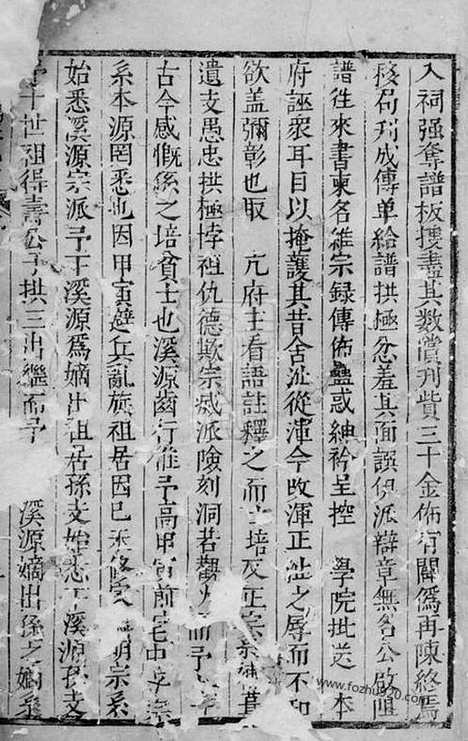 入祠强奪譜板搜盡其數賞刋貲三十金佈有闢僞再陳終焉
移局刋成傳单給譜拱極忿羞其面誤伊派辯章無名公啟唓
譜徃來書柬名維宗録傳佈蠱惑紳衿呈控 學院批送 本
府誣衆耳目以掩護其昔舍沚從渾今改渾正沚之辱而不知
欲盖彌彰也取 亢府主看語註釋之而士培及正宗
遺支愚忠拱極悖祖仇德欺宗滅派險刻洞若觀火而予
古今感慨係之培貧士也溪源齒行准予高甲寅前宅中
系本源罔悉也因甲寅避兵亂旋祖居因已 修 明宗系
始悉溪源宗派予于溪源爲嫡出祖居孫支始悉于溪源孫支
十世祖得壽公予拱三出繼而予 溪源嫡出孫之嫡系
www.fozhu920.com